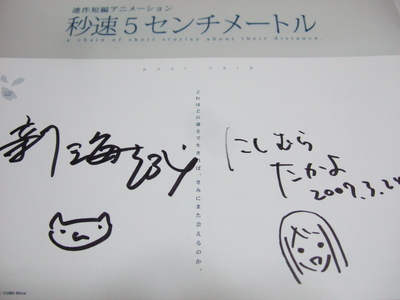 連作短編アニメーション
秒速5センチメートル
a chain of short stories about their distance.
新海
どれほどの速さで生きれば、きみにまた会えるのか。
にしむら
たかよ
2007.3.24